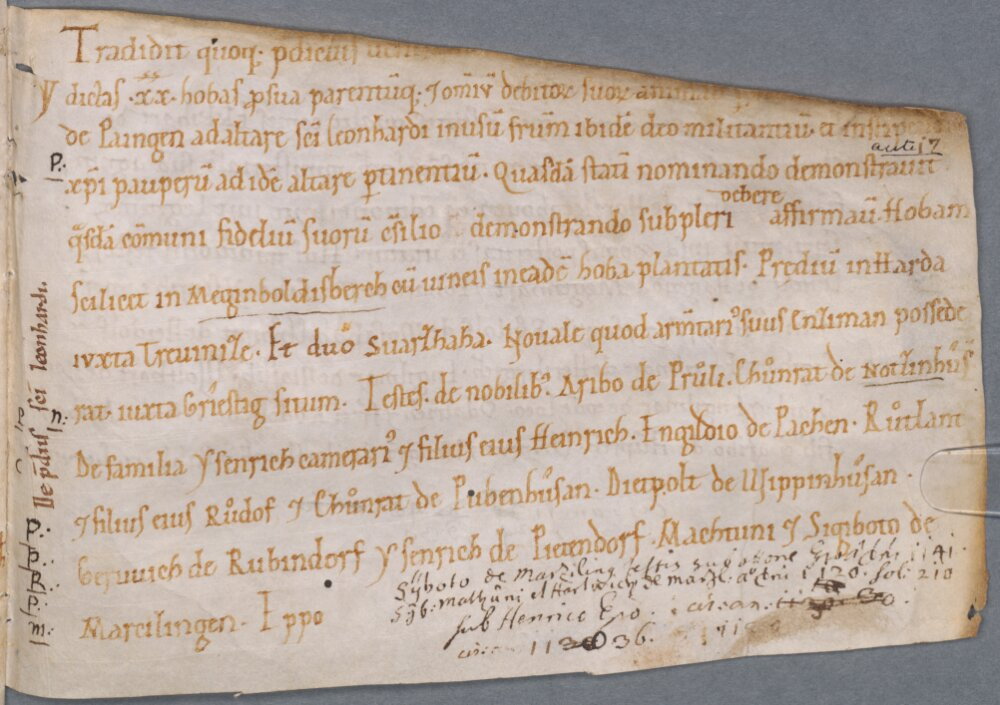 Tradidit quoq; p̄dictus
y dictas ·xx· hobas p̱ sua parentūq; ⁊ om̄iū debitoꝝ suoꝝ anim
de Paingen ad altare sc̄i leonhardi in usū fr̄um ibidē deo militantiū. et in stipe
auti 17
P. xp̄i pauperū ad idē altare p̱tinentiū. Quasdā statī nominando demonstrauit
debere
q̄sdā cōmuni fideliū suorū c̄silio demonstrando sub affirmauit. Hobam
scilicet in Meginboldisberch cū uineis in eadē hoba plantatis. Prediū in Harda
iuxta Treuinse. Et duo Suarzhaha. Nouale quod armtariꝰ suus Enziman possede
rat. iuxta Griestig situm. Testes. de nobilibꝰ. Aribo de Průli. Chůnrat de Notzinhůsē
n:
De familia ysenrich camerariꝰ ⁊ filius eius Heinrich. Engildio de Pachen. Růtlant
⁊ filius eius Růdolf ⁊ Chůnrat de Pubenhůsan. Dietpolt de Wippinhůsan.
p. Geruuich de Rubindorf ysenrich de Pietendorf. Machtuni ⁊ Sigiboto de
p.
p.
p.
m. Marcilingen. Ippo
Sÿboto de Marziling testis sub ottone Ep̄o 1141.
Sÿb. Mathüni et Hartwich de Marzl. 1120. fol. 210
sub Henrico Epō. circ. an.
circ. an. 1136.
De p̄diis sc̄i leonhardi.